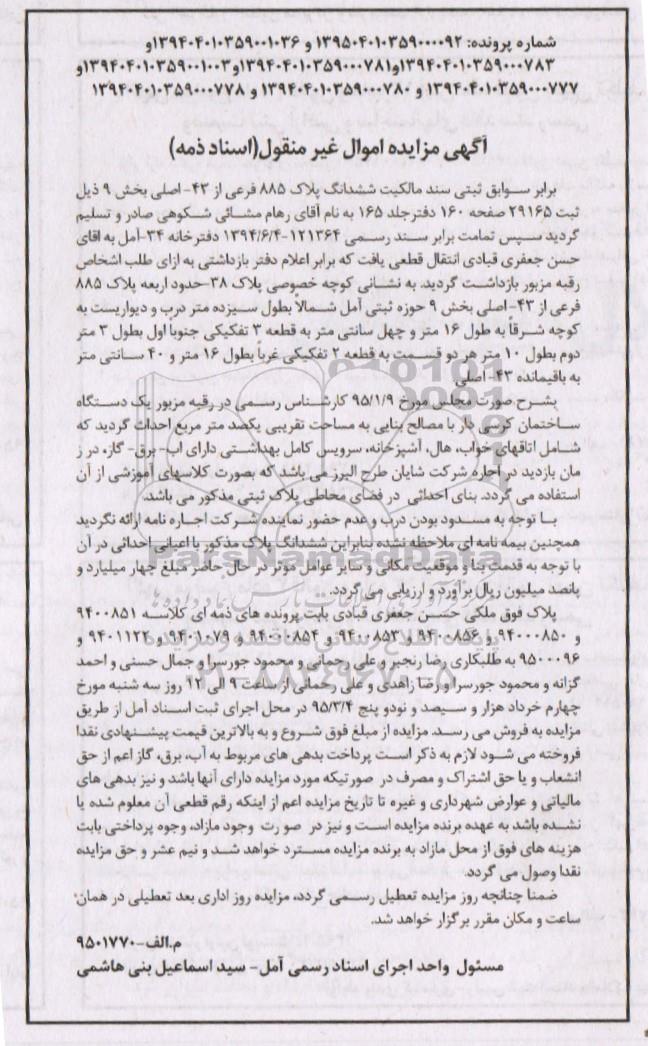 شماره پرونده: ۱۳۹۵۰۴۰۱۰۳۵۹۰۰۰۰۹۲ و ۱۳۹۴۰۴۰۱۰۳۵۹۰۰۱۰۳۶و
۱۳۹۴۰۴۰۱۰۳۵۹۰۰۰۷۸۳و۱۳۹۴۰۴۰۱۰۳۵۹۰۰۰۷۸۱و۱۳۹۴۰۴۰۱۰۳۵۹۰۰۱۰۰۳و
۱۳۹۴۰۴۰۱۰۳۵۹۰۰۰۷۷۷ و ۱۳۹۴۰۴۰۱۰۳۵۹۰۰۰۷۸۰ و ۱۳۹۴۰۴۰۱۰۳۵۹۰۰۰۷۷۸
آگهی مزایده اموال غیر منقول(اسناد ذمه)
برابر سوابق ثبتی سند مالکیت ششدانگ پلاک ۸۸۵ فرعی از ۴۳- اصلی بخش ۹ ذیل
ثبت ۲۹۱۶۵ صفحه ۱۶۰ دفترجلد ۱۶۵ به نام آقای رهام مشائی شکوهی صادر و تسلیم
گردید سپس تمامت برابر سند رسمی ۱۲۱۳۶۴-۱۳۹۴/۶/۴ دفترخانه ۳۴-آمل به اقای
حسن جعفری قبادی انتقال قطعی یافت که برابر اعلام دفتر بازداشتی به ازای طلب اشخاص
رقبه مزبور بازداشت گردید. به نشانی کوچه خصوصی پلاک ۳۸-حدود اربعه پلاک ۸۸۵
فرعی از ۴۳- اصلی بخش ۹ حوزه ثبتی آمل شمالاً بطول سیزده متر درب و دیواریست به
کوچه شرقاً به طول ۱۶ متر و چهل سانتی متر به قطعه ۳ تفکیکی جنوبا اول بطول ۳ متر
دوم بطول ۱۰ متر هر دو قسمت به قطعه ۲ تفکیکی غرباً بطول ۱۶ متر و ۴۰ سانتی متر
به باقیمانده ۴۳- اصلی
بشرح صورت مجلس مورخ ۹۵/۱/۹ کارشناس رسمی در رقبه مزبور یک دستگاه
ساختمان کرسی دار با مصالح بنایی به مساحت تقریبی یکصد متر مربع احداث گردید که
شامل اتاقهای خواب، هال، آشپزخانه، سرویس کامل بهداشتی دارای اب- برق- گاز، در ز
مان بازدید در اجاره شرکت شایان طرح البرز می باشد که بصورت کلاسهای آموزشی از آن
استفاده می گردد. بنای احداثی در فضای محاطی پلاک ثبتی مذکور می باشد.
با توجه به مسدود بودن درب و عدم حضور نماینده شرکت اجاره نامه ارائه نگردید
همچنین بیمه نامه ای ملاحظه نشده بنابراین ششدانگ پلاک مذکور با اعیانی احداثی در آن
با توجه به قدمت بنا و موقعیت مکانی و سایر عوامل موثر در حال حاضر مبلغ چهار میلیارد و
پانصد میلیون ریال برآورد و ارزیابی می گردد.
پلاک فوق ملکی حسن جعفری قبادی بابت پرونده های ذمه ای کلاسه ۹۴۰۰۸۵۱
و ۹۴۰۰۰۸۵۰ و ۹۴۰۰۸۵۶ و ۹۴۰۰۸۵۳ و ۹۴۰۰۸۵۴ و ۹۴۰۱۰۷۹ و ۹۴۰۱۱۲۲ و
۹۵۰۰۰۹۶ به طلبکاری رضا رنجبر و علی رحمانی و محمود جورسرا و جمال حسنی و احمد
گزانه و محمود جورسرا و رضا زاهدی و علی رحمانی از ساعت ۹ الی ۱۲ روز سه شنبه مورخ
چهارم خرداد هزار و سیصد و نودو پنج ۹۵/۳/۴ در محل اجرای ثبت اسناد آمل از طریق
مزایده به فروش می رسد. مزایده از مبلغ فوق شروع و به بالاترین قیمت پیشنهادی نقدا
فروخته می شود لازم به ذکر است پرداخت بدهی های مربوط به آب، برق، گاز اعم از حق
انشعاب و یا حق اشتراک و مصرف در صورتیکه مورد مزایده دارای آنها باشد و نیز بدهی های
مالیاتی و عوارض شهرداری و غیره تا تاریخ مزایده اعم از اینکه رقم قطعی آن معلوم شده یا
نشده باشد به عهده برنده مزایده است و نیز در صورت وجود مازاد، وجوه پرداختی بابت
هزینه های فوق از محل مازاد به برنده مزایده مسترد خواهد شد و نیم عشر و حق مزایده
نقدا وصول می گردد.
ضمنا چنانچه روز مزایده تعطیل رسمی گردد، مزایده روز اداری بعد تعطیلی در همان
ساعت و مکان مقرر برگزار خواهد شد.
م.الف-۹۵۰۱۷۷۰
مسئول واحد اجرای اسناد رسمی آمل- سید اسماعیل بنی هاشمی
ParsNamadData